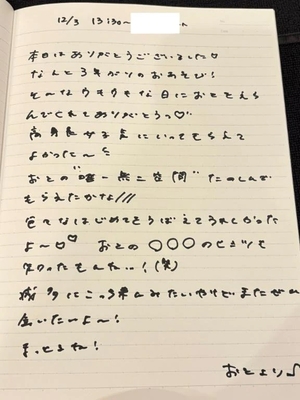 12/3 13:30~
本日はありがとうございました♡
なんと3年ぶりのおあそび!
そーなウキウキな日におとをえら
んでくれてありがとうっ♡
高身長女子えにいってもらえて
よかった〜
おとの"唯一無二空間"たのしんで
もらえたかな///
色々なはじめてをうばえてうれしかった
よ〜♡♡ おとの〇〇〇のヒミツも
知ったもんねっ!(笑)
滅多にこっち来んみたいやけどまたぜっ
会いたいよ〜!
まっとるね!
おとより♪